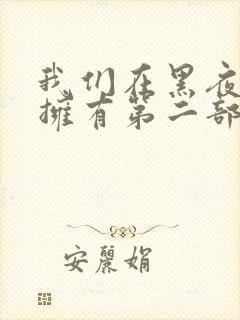 我们在黑夜
擁有第二部
安麗娟